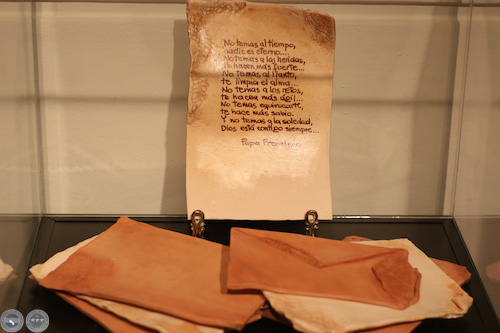 No temas al tiempo,
nadie es eterno....
No temas a las heridas,
te hacen más fuerte...
No temas al llanto,
te limpia el alma...
No temas a los retos,
te hacen más ágil...
No temas equivocarte,
te hace más sabio.
Y no temas a la soledad,
Dios está contigo siempre...
Papa Francisco